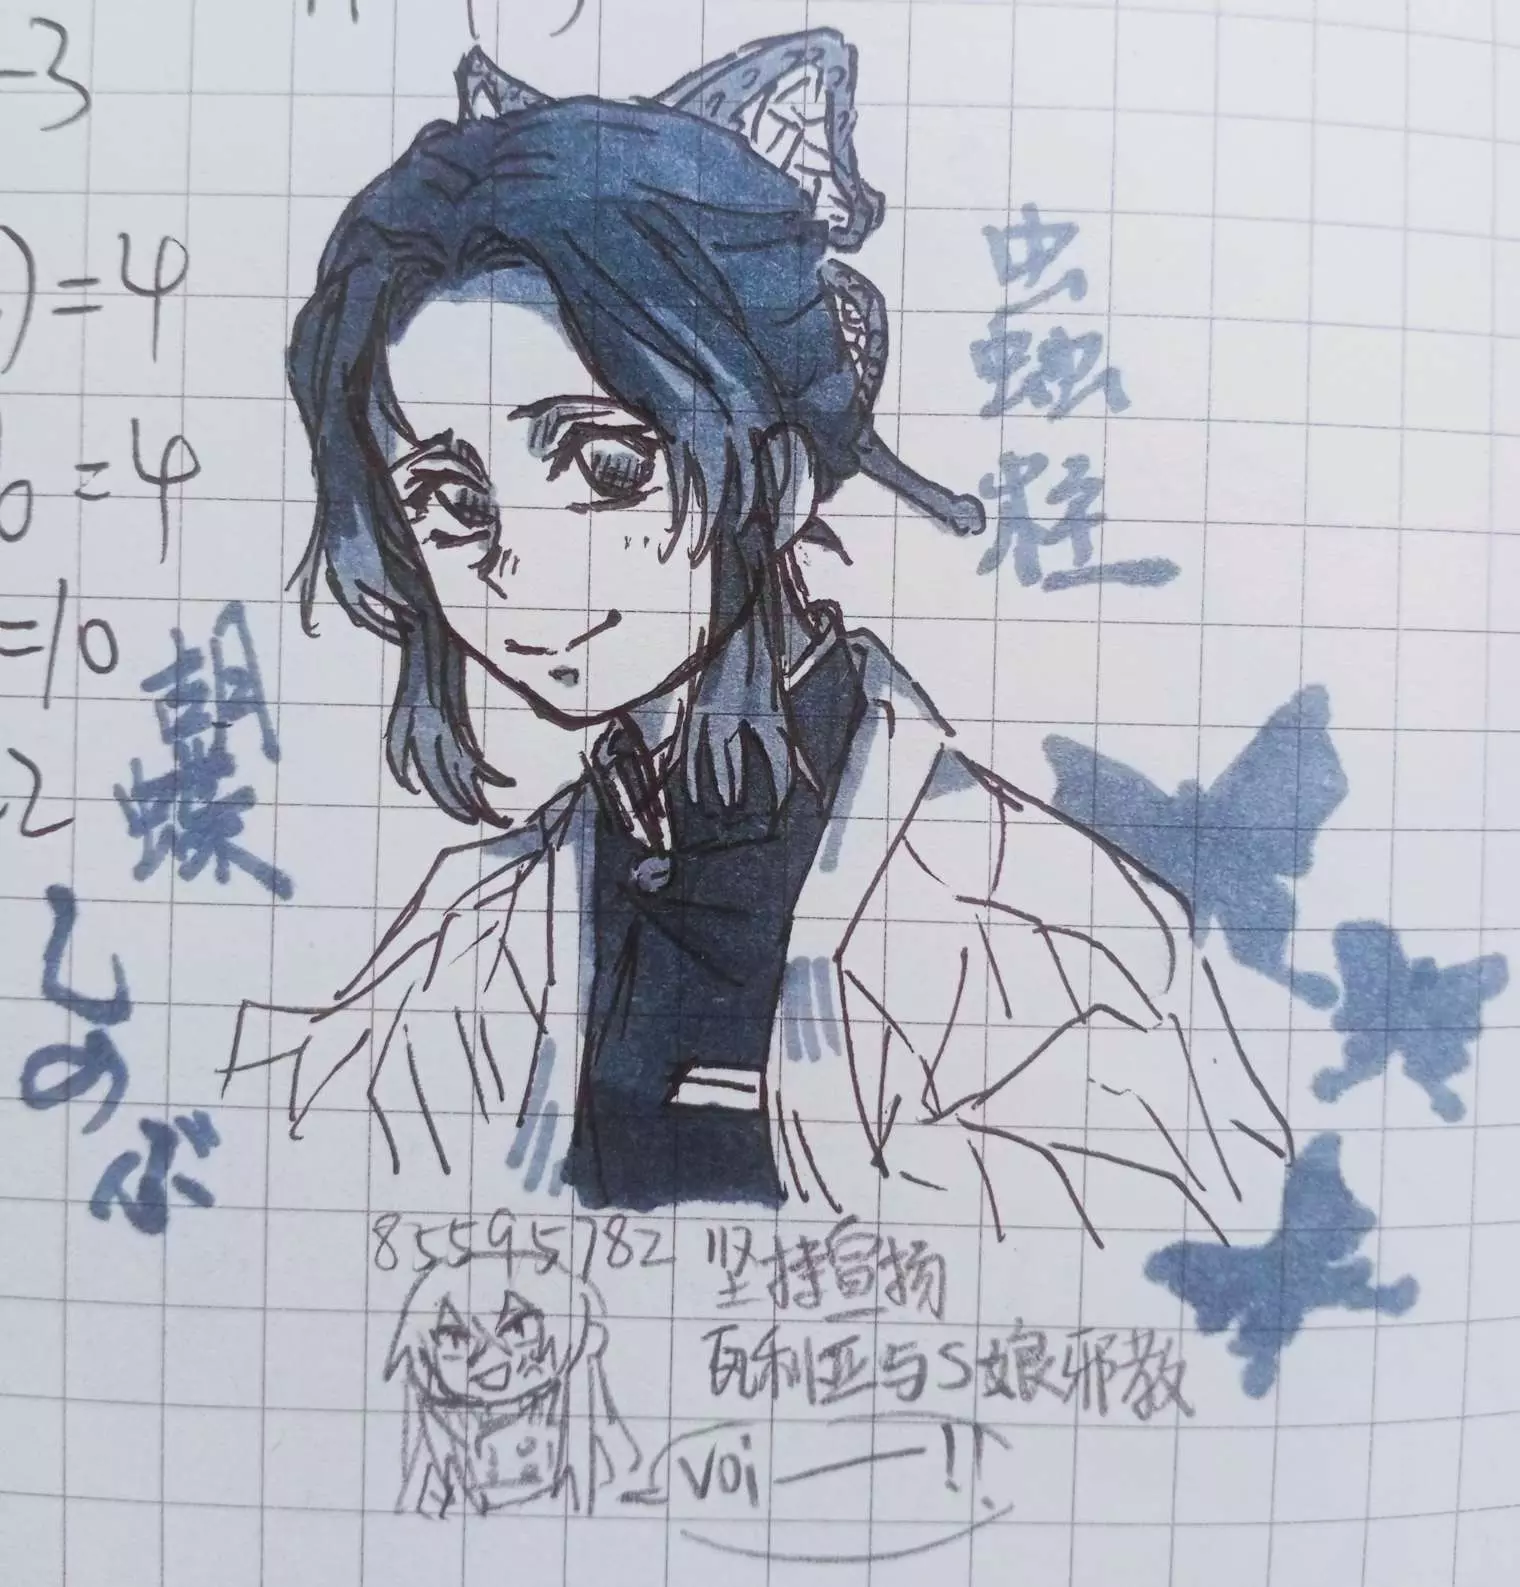 -3
)=4
=4
=10
2
蟲柱
胡蝶しのぶ
85595782 坚持宣扬
瓦利亚与S娘邪教
voi——!!